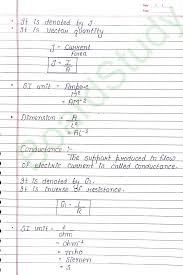 • It is denoted by J
• It is vector quantity
J = Current / Area
J = I / A
• SI unit = Ampere / M²
= AM⁻²
• Dimension = A / L²
= AL⁻²
Conductance :-
The support produced to flow
of electric current is called conductance.
It is denoted by G.
It is inverse of resistance.
G = 1 / R
• SI unit = 1 / ohm
= ohm⁻¹
= mho
= Siemen
= S